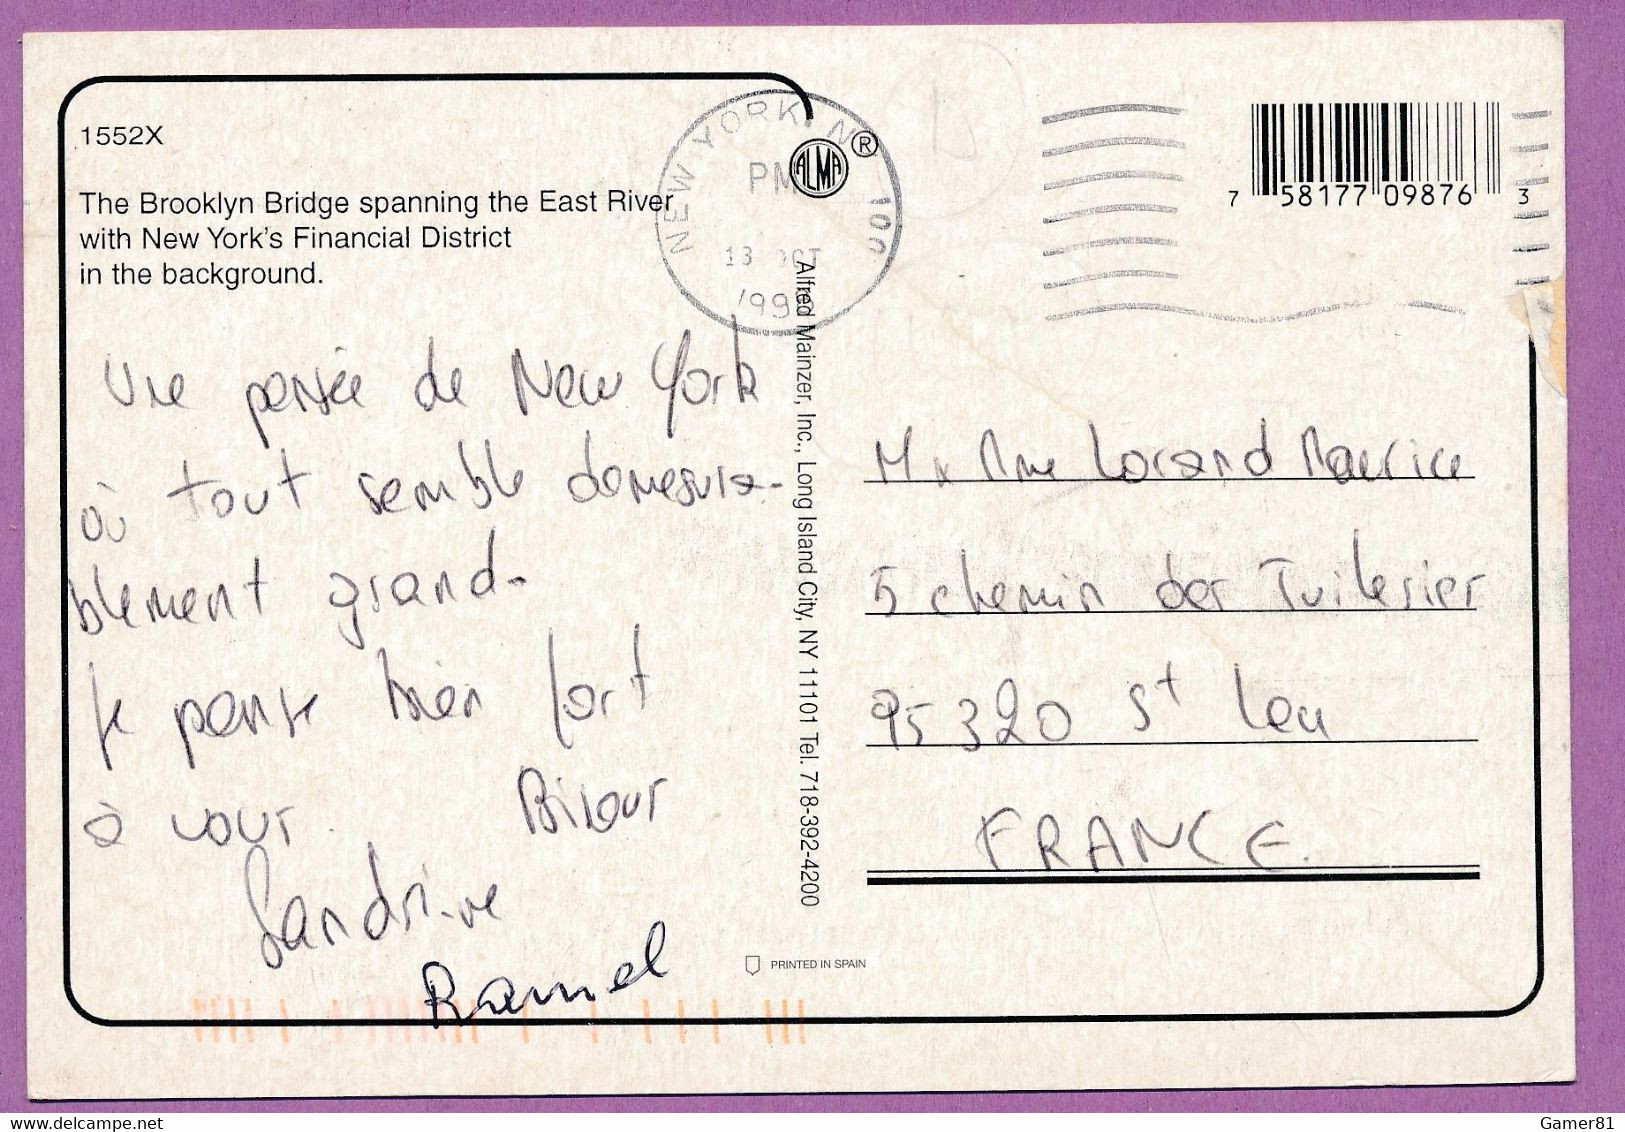 1552X
The Brooklyn Bridge spanning the East River
with New York's Financial District
in the background.
NEW YORK, N 100
PM
13 OCT
199
ALMA ®
7 58177 09876 3
Une pensée de New York
où tout semble demesura-
blement grand.
Je pense bien fort
à vous. Bisous
Sandrine
Ramel
Alfred Mainzer, Inc., Long Island City, NY 11101 Tel. 718-392-4200
M x Mme Locand Maurice
5 chemin des Tuileries
95320 St Leu
FRANCE.
PRINTED IN SPAIN
Gamer81
delcampe.net